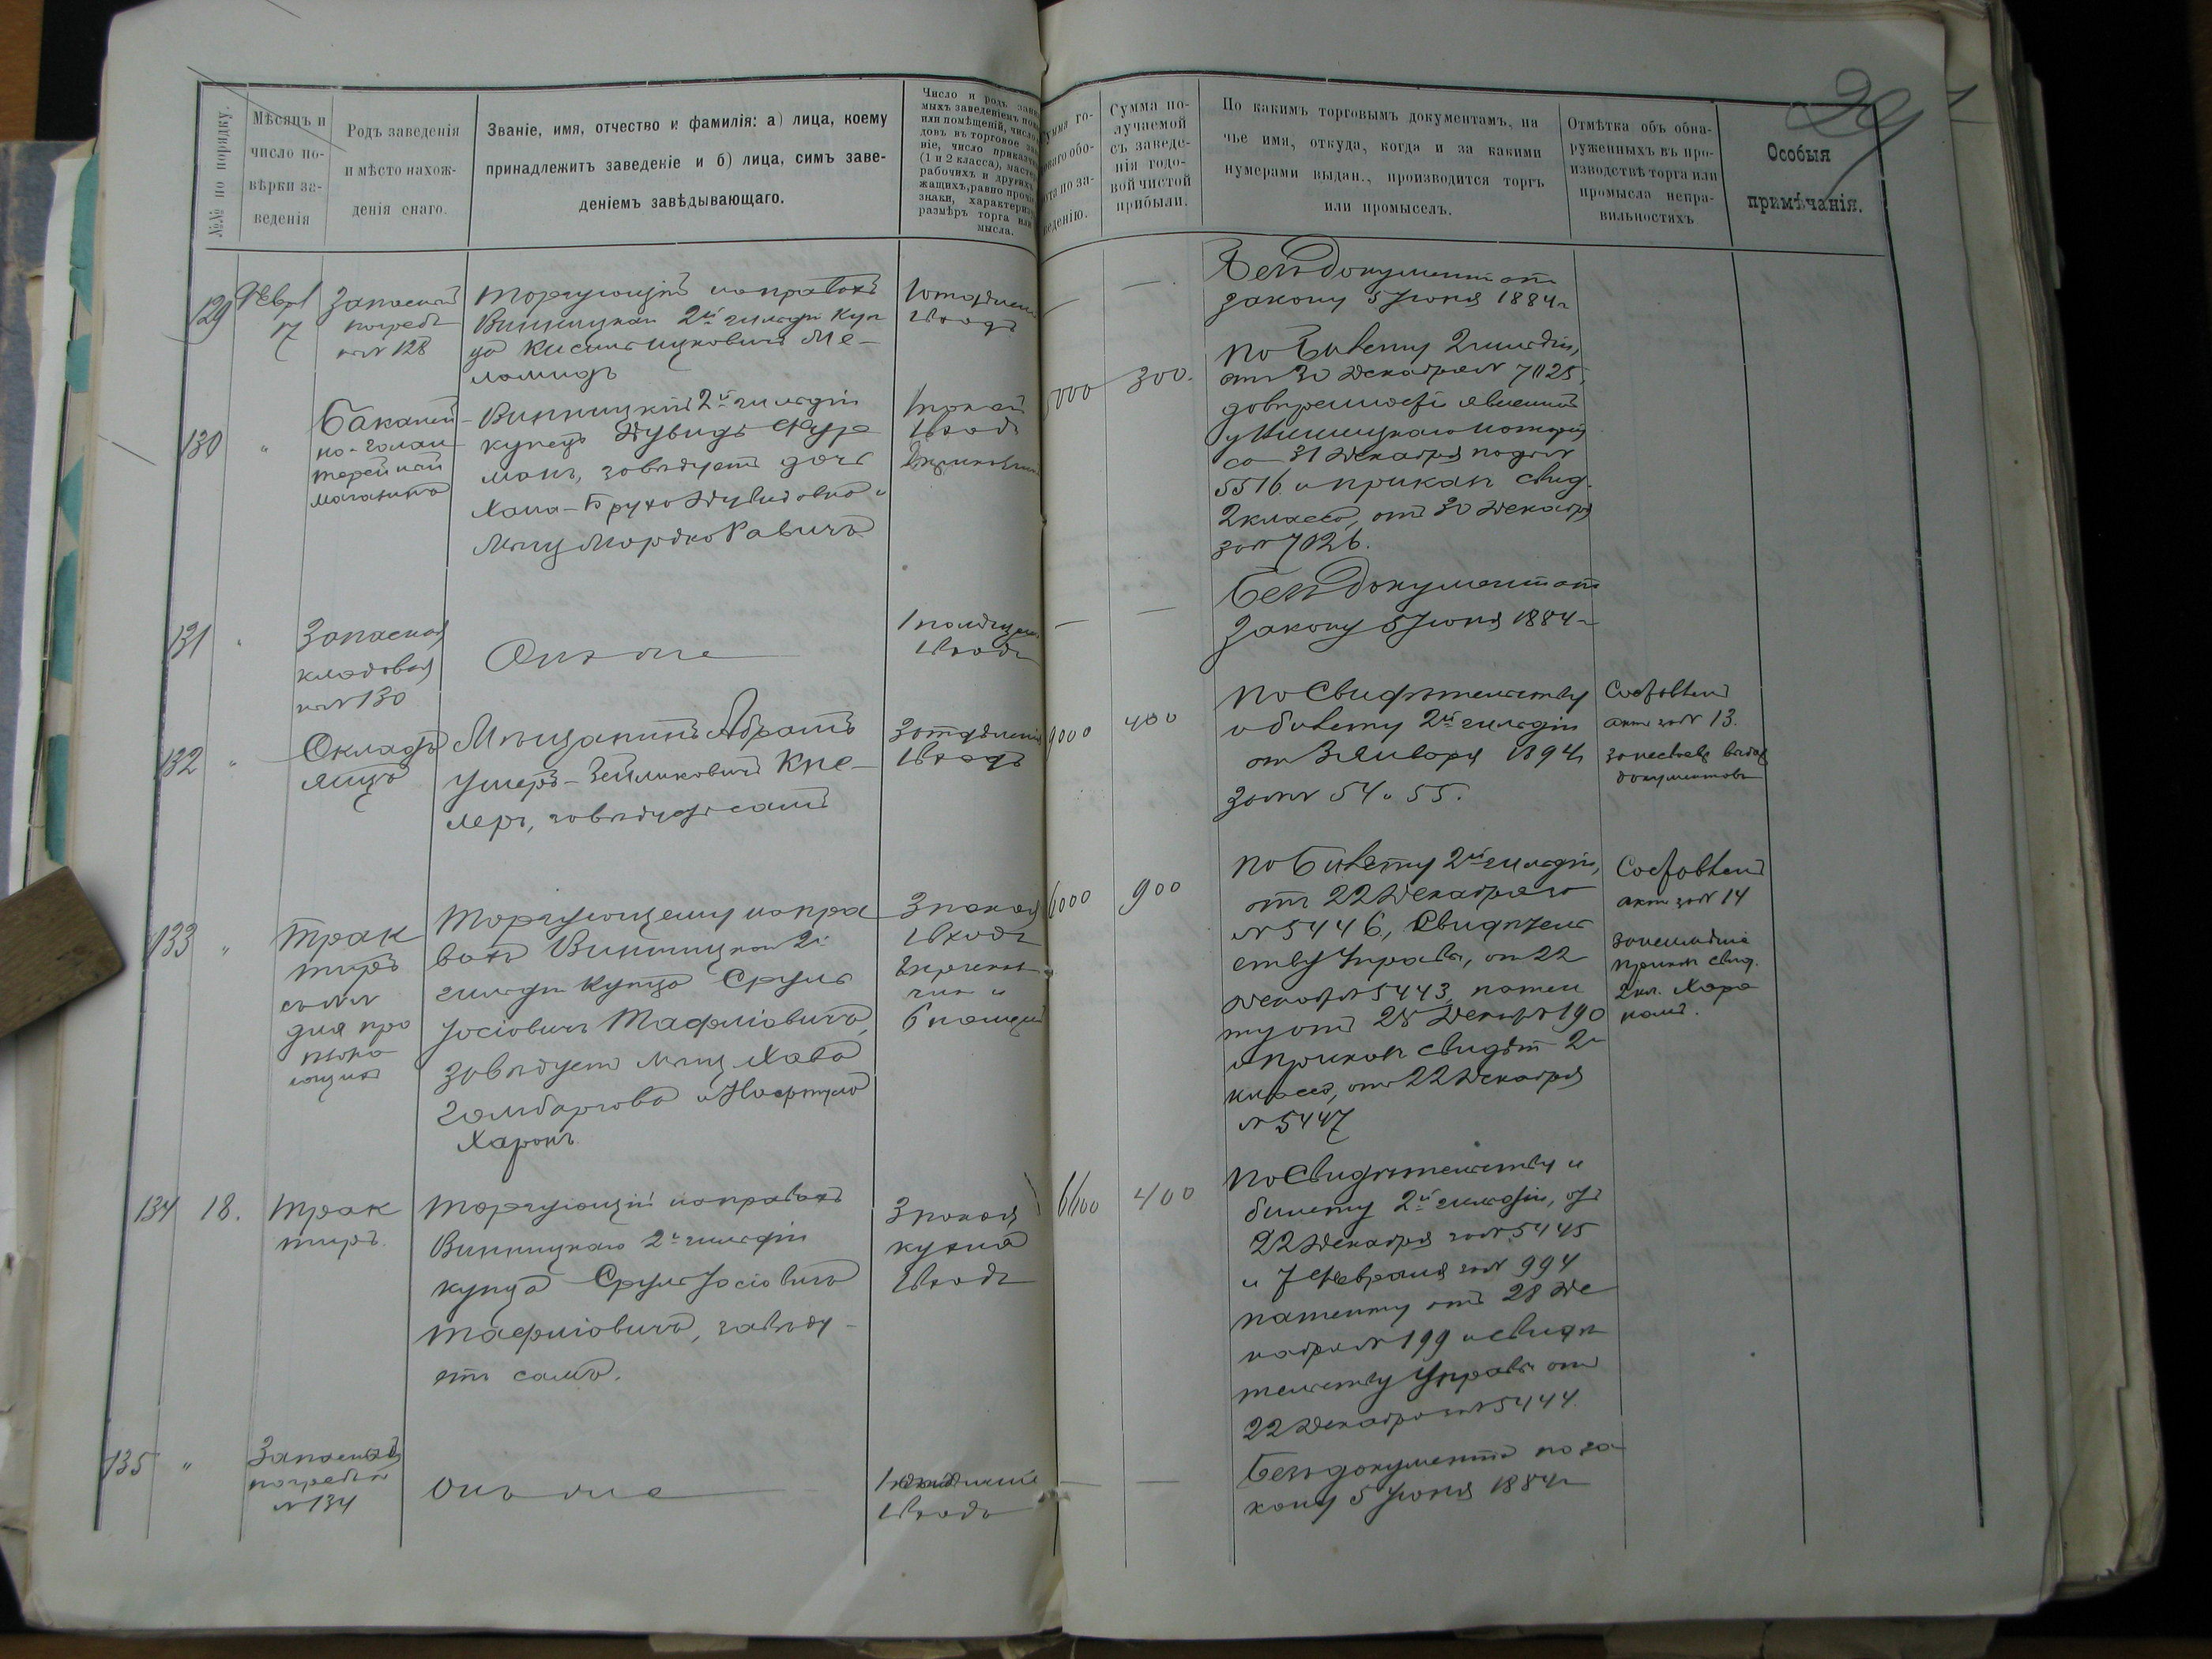 29
№№ по порядку.
Мѣсяцъ и
число по-
вѣрки за-
веденія
Родъ заведенія
и мѣсто нахож-
денія снаго.
Званіе, имя, отчество и фамилія: а) лица, коему
принадлежитъ заведеніе и б) лица, симъ заве-
деніемъ завѣдывающаго.
Число и родъ
мыхъ заведеніемъ
или помѣщеній, число
довъ въ торговое
ніе, число
(1 и 2 класса),
рабочихъ и другихъ
жащихъ, равно
знаки,
размѣръ торга или
мысла.
го-
обо-
по за-
веденію.
Сумма по-
лучаемой
съ заведе-
нія годо-
вой чистой
прибыли.
По какимъ торговымъ документамъ, на
чье имя, откуда, когда и за какими
нумерами выдан., производится торгъ
или промыселъ.
Отмѣтка объ обна-
руженныхъ въ про-
изводствѣ торга или
промысла непра-
вильностяхъ
Особыя
примѣчанія.
129
Февр
17
Запасный
погребъ
къ № 128
Торгующій на правахъ
Винницкаго 2й гильдіи куп
ца
Ме-
ламидъ
1 отдѣлен
1 входъ
—
—
Безъ документ по
закону 5 Іюня 1884 г
130
"
Бакалей
но-галан
терейный
магазинъ
Винницкій 2й гильдіи
купецъ Дувидъ Фур
манъ, завѣдуетъ дочь
Хана-Бруха Дувидовна и
Мѣщ Мордко Равичъ
1 покой
1 входъ
300.
По билету 2 гильдіи,
отъ 30 Декабря № 7025,
довѣренности явленной
у Винницкаго
31 Декабря подъ №
5516 и приказч свид.
2 класса, отъ 30 Декабря
за № 7026.
131
"
Запасная
кладовая
къ № 130
Онъ же
1 помѣщен
1 входъ
—
—
Безъ документ по
закону 5 Іюня 1884 г
132
"
Складъ
яицъ
Мѣщанинъ Абрамъ
Ушеръ-Зейликовичъ Кне-
леръ, завѣдуетъ самъ
3 отдѣленія
1 входъ
9000
400
По Свидѣтельству
и билету 2й гильдіи
отъ 3 Января 1894 г
за №№ 54 и 55.
Составленъ
актъ за № 13.
документовъ
133
"
Трак
тиръ
съ №№
для про
ѣзжа
ющихъ
Торгующему на пра
вахъ Винницкаго 2й
гильдіи купца Сруль
Іосіовичъ Мафліовичъ,
завѣдуетъ мѣщ Хава
Гольдбаргова и Нафтула
Харакъ.
3 покоя
1 входъ
6 помѣщен
6000
900
По билету 2й гильдіи,
отъ 22 Декабря за
№ 5446, Свидѣтель
ству Управы, отъ 22
Декаб № 5443, патен
ту отъ 28 Декабр № 190
и приказч свидѣт 2го
класса, отъ 22 Декабря
№ 5447
Составленъ
актъ за № 14
приказч свид.
2 кл.
134
18.
Трак
тиръ.
Торгующій на правахъ
Винницкаго 2й гильдіи
купца Сруль Іосіовичъ
Мафліовичъ, завѣду-
етъ самъ.
3 покоя
кухня
1 входъ
6600
400
По Свидѣтельству и
билету 2й гильдіи, отъ
22 Декабря за № 5445
и 7 Февраля за № 994
патенту отъ 28 Де
кабря № 199 и свидѣ
тельству Управы отъ
22 Декабря за № 5444.
135
"
Запасный
погребъ къ
№ 134
Онъ же
1 входъ
—
—
Безъ документа по за
кону 5 Іюня 1884 г